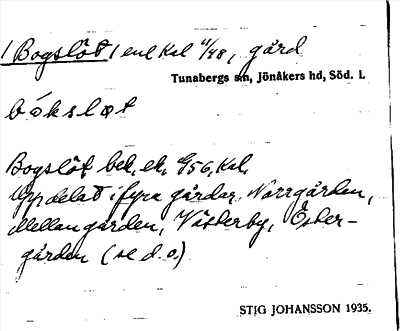 /Bogslöt/ enl kal 11/48, gård
Tunabergs sn, Jönåkers hd, Söd. l.
bóksløt
Bogslöt bel. ek. G56, kal.
Uppdelat i fyra gårdar Norrgården,
Mellangården, Västerby, Öster-
gården (se d. o.)
STIG JOHANSSON 1935.